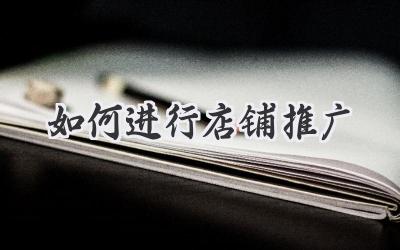 如何进行店铺推广